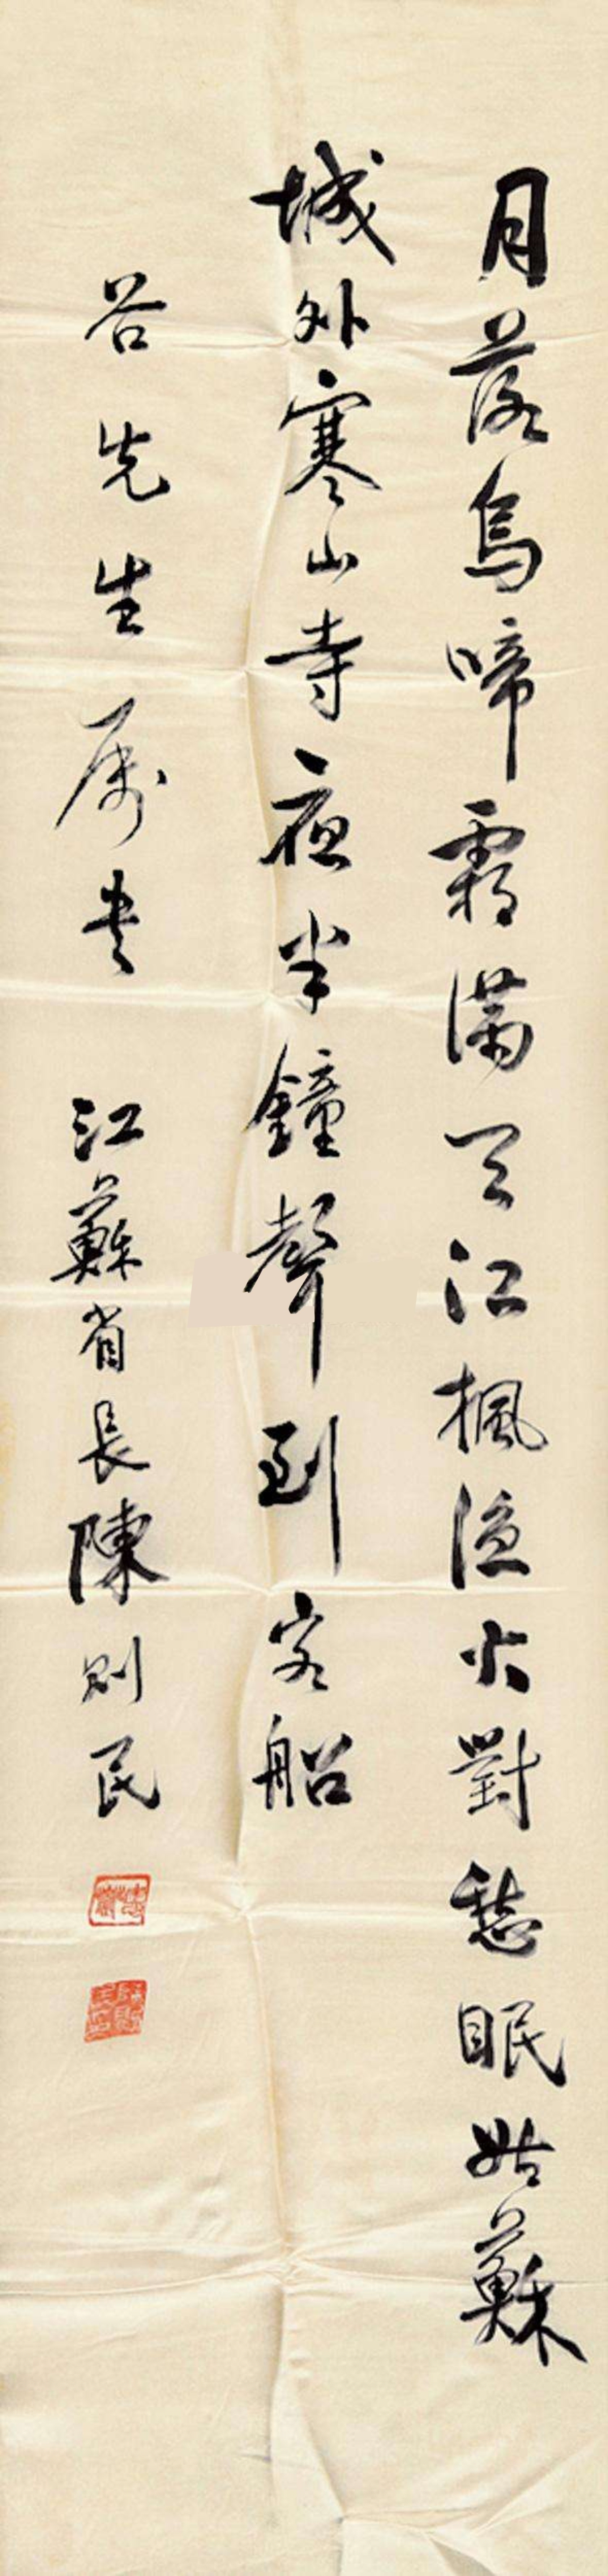 月落烏啼霜滿天江楓漁火對愁眠姑蘇
城外寒山寺夜半鐘聲到客船
谷先生属書 江蘇省長陳則民